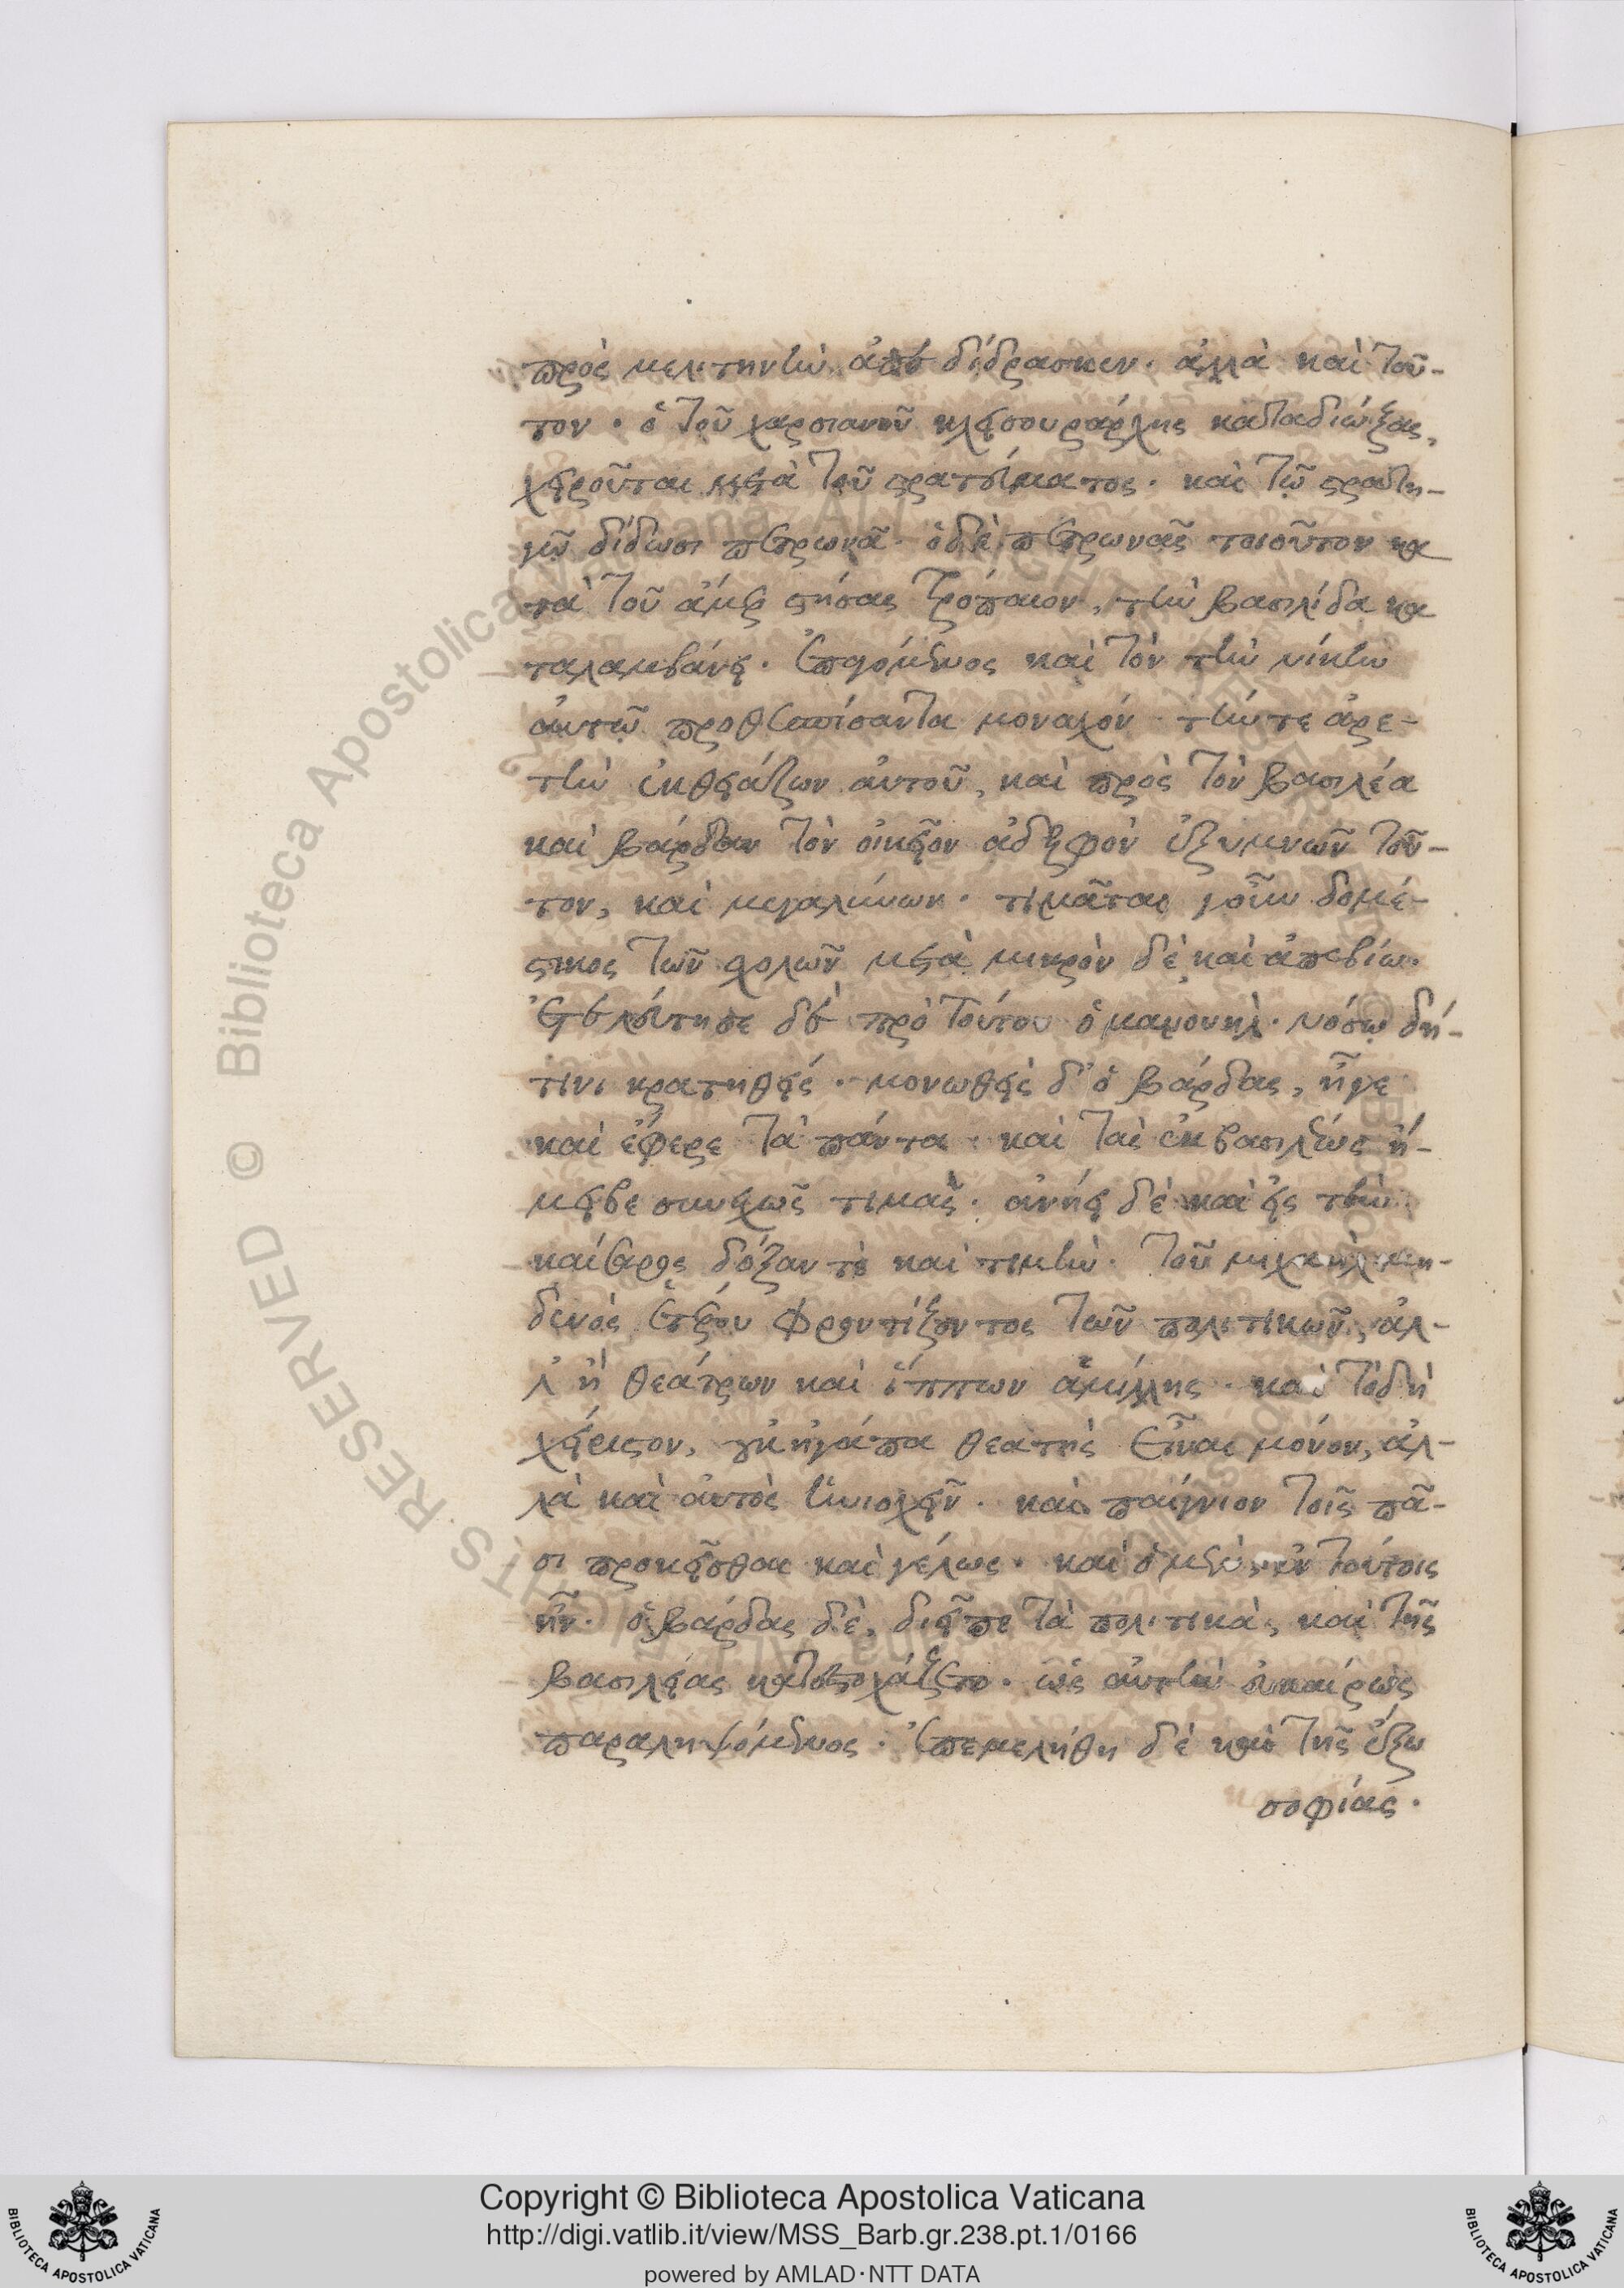 πρὸς μελιτηνὴν ἀπεδίδρασκεν. ἀλλὰ καὶ τοῦ-
τον. ὁ τοῦ χαρσιανοῦ κλεισουράρχης καταδιώξας,
χειροῦται μετὰ τοῦ στρατεύματος. καὶ τῷ στρατη-
γῷ δίδωσι πετρωνᾷ. ὁ δὲ πετρωνᾶς τοιοῦτον κα
τὰ τοῦ ἀμὲρ στήσας τρόπαιον, τὴν βασιλίδα κα
ταλαμβάνει. ἐπαγόμενος καὶ τὸν τὴν νίκην
αὐτῷ προθεσπίσαντα μοναχόν. τήν τε ἀρε-
τὴν ἐκθειάζων αὐτοῦ, καὶ πρὸς τὸν βασιλέα
καὶ βάρδαν τὸν οἰκεῖον ἀδελφὸν ἐξυμνῶν τοῦ-
τον, καὶ μεγαλύνων. τιμᾶται γοῦν δομέ-
στικος τῶν σχολῶν μετὰ μικρὸν δὲ καὶ ἀπεβίω.
ἐτελεύτησε δὲ πρὸ τούτου ὁ μανουὴλ. νόσῳ δή-
τινι κρατηθείς. μονωθεὶς δ' ὁ βάρδας, ἦγε
καὶ ἔφερε τὰ πάντα. καὶ τὰς ἐκ βασιλέως ἤ-
μειβε συνεχῶς τιμὰς. ἀνήει δὲ καὶ εἰς τὴν
καίσαρος δόξαν τὲ καὶ τιμὴν. τοῦ μιχαὴλ μη-
δενὸς ἑτέρου φροντίζοντος τῶν πολιτικῶν, ἀλ-
λ' ἢ θεάτρων καὶ ἵππων ἁμίλλης. καὶ τὸ δὴ
χείριστον, οὐκ ἠγάπα θεατὴς εἶναι μόνον, ἀλ-
λὰ καὶ αὐτὸς ἡνιοχεῖν. καὶ παίγνιον τοῖς πᾶ-
σι προκεῖσθαι καὶ γέλως. καὶ ὁ μὲν, ἐν τούτοις
ἦν. ὁ βάρδας δὲ, διεῖπε τὰ πολιτικὰ, καὶ τῆς
βασιλείας κατεστοχάζετο. ὡς αὐτὴν εὐκαίρως
παραληψόμενος. ἐπεμελήθη δὲ καὶ τῆς ἔξω
σοφίας.
Copyright © Biblioteca Apostolica Vaticana
http://digi.vatlib.it/view/MSS_Barb.gr.238.pt.1/0166
powered by AMLAD·NTT DATA